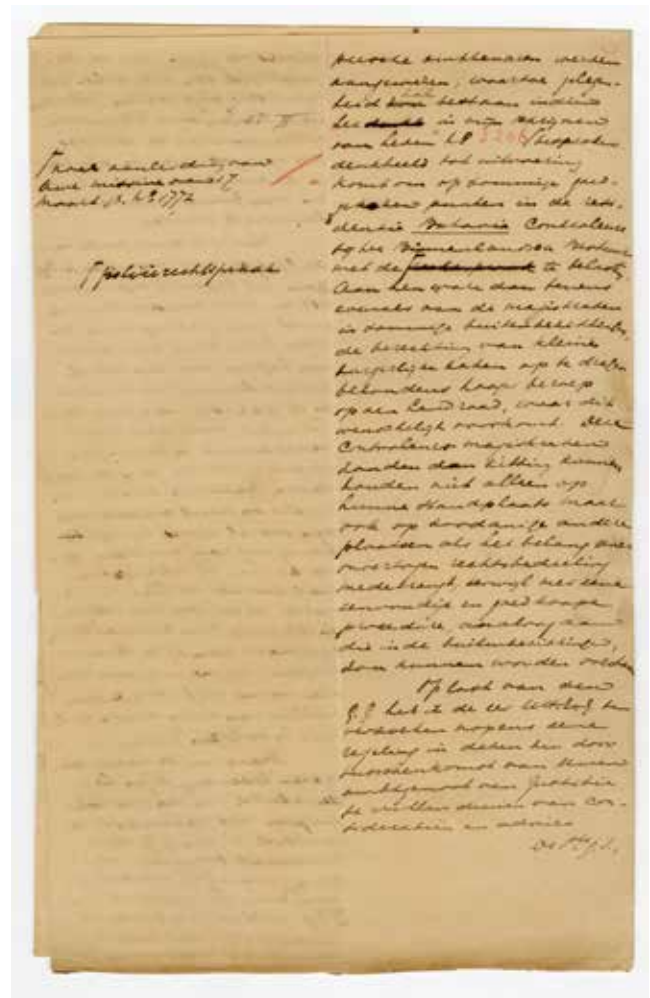 Naar aanleiding van
Uwe missive van 17
Maart jl. No 1772
politierechtspraak
ambtenaren werden
aangewezen, waartoe gelegen-
heid zal bestaan indien
het in mijn schrijven
van heden LP besproken
denkbeeld tot uitvoering
komt om op sommige goed
gekozen punten in de resi-
dentie Batavia Controleurs
bij het Binnenlandsch Bestuur
met de te belasten
Aan hen ware dan tevens
evenals aan de magistraten
in sommige buitenbezittingen,
de berechting van kleine
burgerlijke zaken op te dragen
behoudens hooger beroep
op den Landraad, waar dit
wenschelijk voorkomt. Deze
Controleurs magistraten
zouden dan zitting kunnen
houden niet alleen op
hunne standplaats maar
ook op zoodanige andere
plaatsen als het belang eener
onvertogen rechtsbedeeling
medebrengt, terwijl met eene
eenvoudige en goedkoope
procedure, analoog aan
die in de buitenbezittingen,
zou kunnen worden
Op last van den
G.G. heb ik de eer UEdG te
verzoeken nopens deze
regeling in dezen
van Uwen
ambtgenoot van Justitie
te willen dienen van con-
sideratien en advies